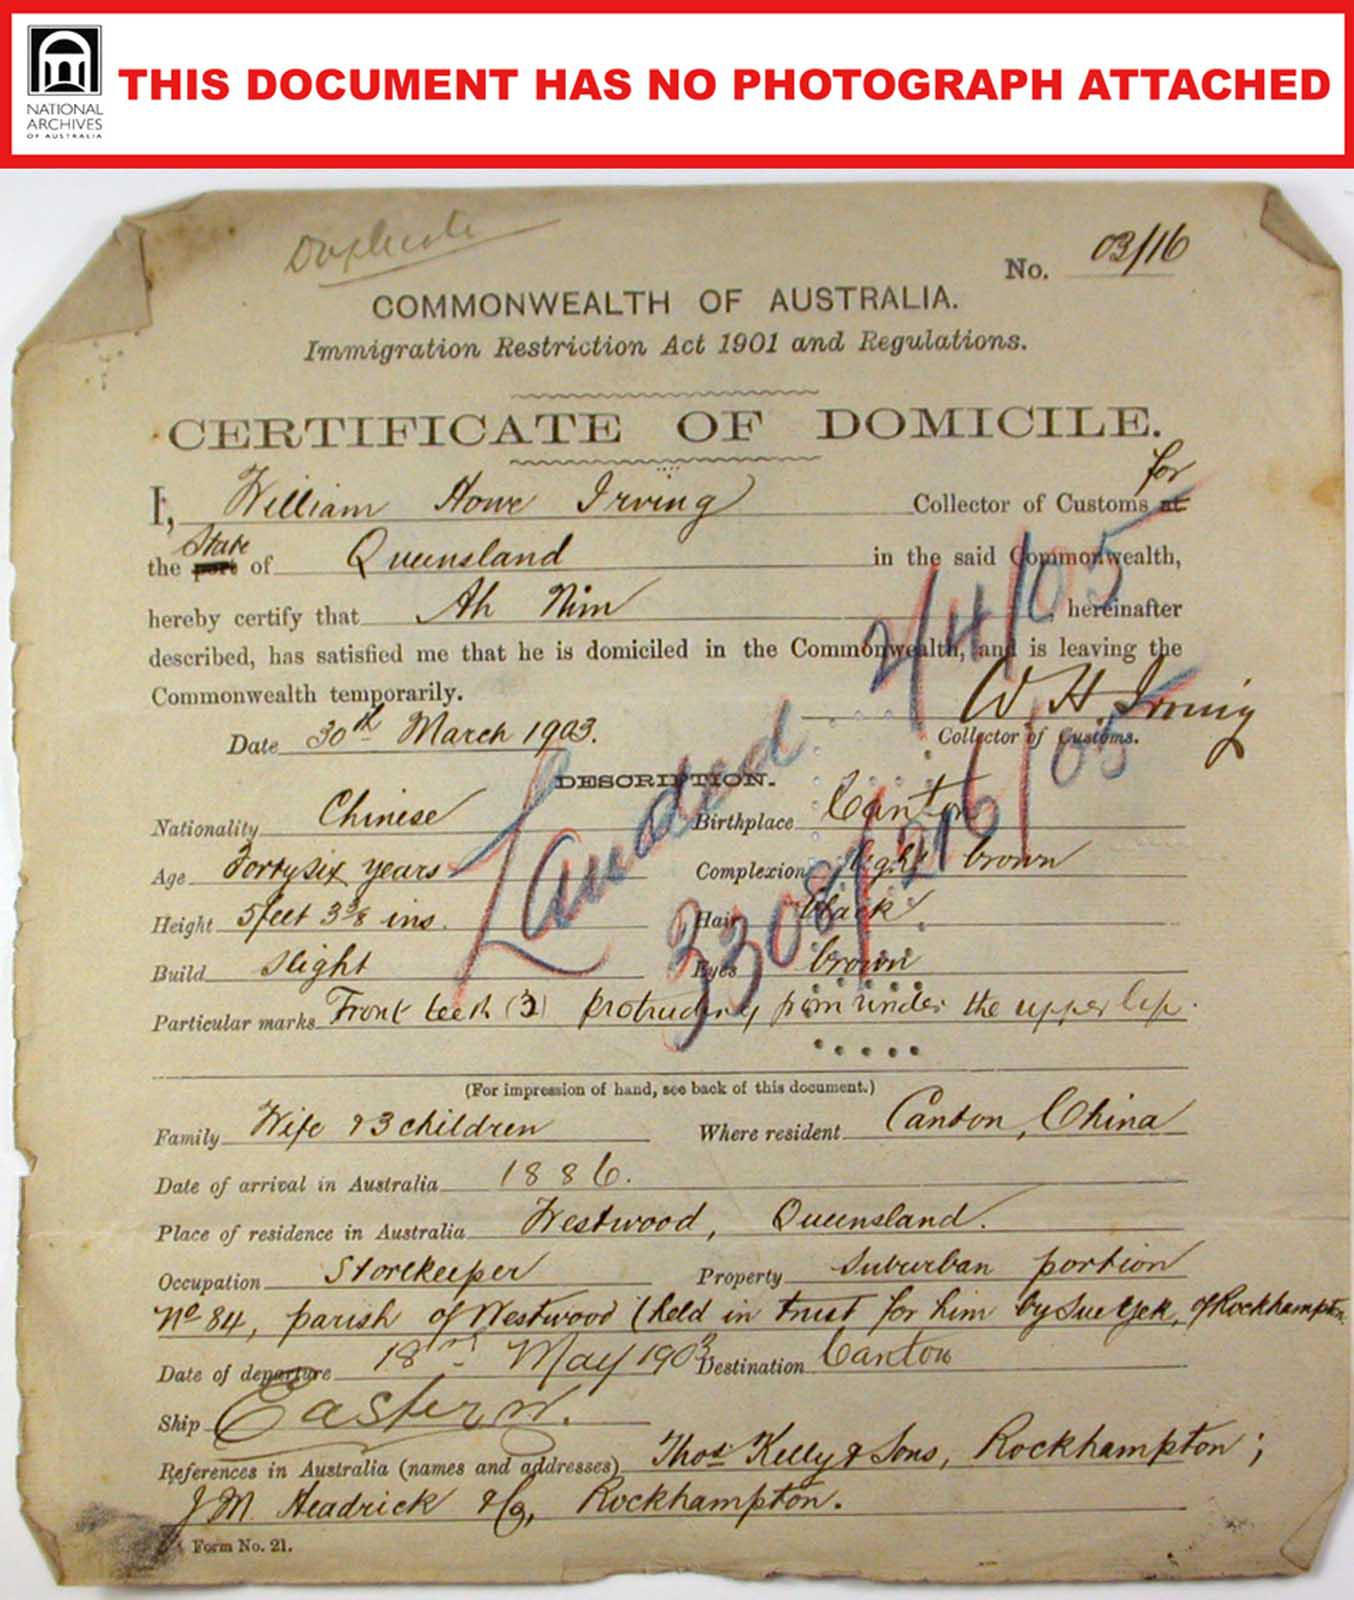 NATIONAL
ARCHIVES
OF AUSTRALIA
THIS DOCUMENT HAS NO PHOTOGRAPH ATTACHED
Duplicate
No. 03/16
COMMONWEALTH OF AUSTRALIA.
Immigration Restriction Act 1901 and Regulations.
CERTIFICATE OF DOMICILE.
for
I, William Howe Irving Collector of Customs at
State
the port of Queensland in the said Commonwealth,
hereby certify that Ah Nim hereinafter
described, has satisfied me that he is domiciled in the Commonwealth, and is leaving the
Commonwealth temporarily.
W. H. Irving
Date 30th March 1903. Collector of Customs.
Landed 2/4/05
DESCRIPTION.
Nationality Chinese Birthplace Canton
Age Forty six years Complexion light brown
Height 5 feet 3 3/8 ins. Hair black
Build slight Eyes brown
Particular marks Front teeth (3) protruding from under the upper lip.
(For impression of hand, see back of this document.)
Family Wife & 3 children Where resident Canton, China
Date of arrival in Australia 1886.
Place of residence in Australia Westwood, Queensland.
Occupation Storekeeper Property Suburban portion
No 84, parish of Westwood (held in trust for him by Sue Yek, of Rockhampton
Date of departure 18th May 1903 Destination Canton
Ship Eastern.
References in Australia (names and addresses) Thos Kelly & Sons, Rockhampton;
J. M. Headrick & Co, Rockhampton.
Form No. 21.